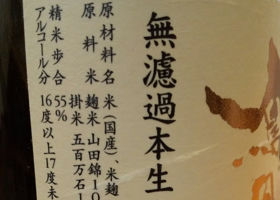 無濾過本生
原材料名 米(国産)、米麹
原料米 麹米 山田錦10
掛米 五百万石1
精米歩合 55%
アルコール分 16度以上17度未